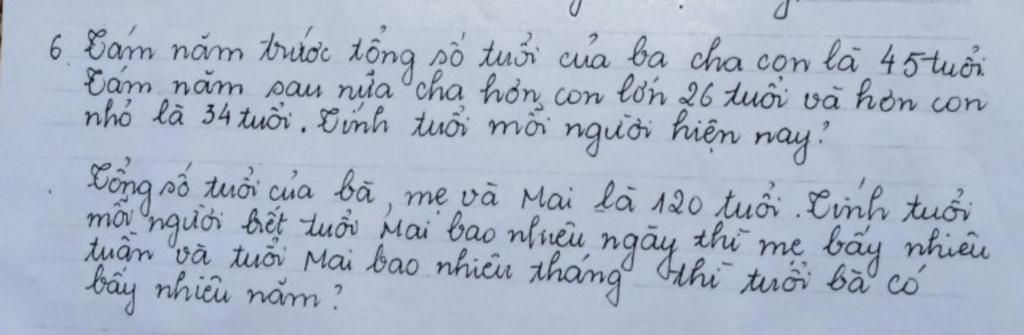 6. Tám năm trước tổng số tuổi của ba cha con là 45 tuổi.
Tám năm sau nữa cha hơn con lớn 26 tuổi và hơn con
nhỏ là 34 tuổi. Tính tuổi mỗi người hiện nay?
Tổng số tuổi của bà, mẹ và Mai là 120 tuổi. Tính tuổi
mỗi người biết tuổi Mai bao nhiêu ngày thì mẹ bấy nhiêu
tuần và tuổi Mai bao nhiêu tháng thì tuổi bà có
bấy nhiêu năm?